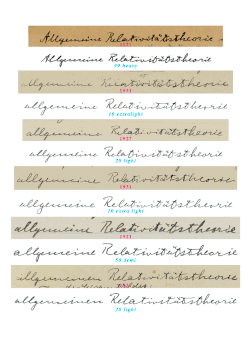 Allgemeine Relativitätstheorie.
1921
Allgemeine Relativitätstheorie
99 heavy
allgemeine Relativitätstheorie
allgemeine Relativitätstheorie
10 extralight
allgemeine Relativitätstheorie
allgemeine Relativitätstheorie
20 light
allgemeine Relativitätstheorie
1951
allgemeine Relativitätstheorie
allgemeine Relativitätstheorie
allgemeine Relativitätstheorie
allgemeinen Relativitätstheorie
allgemeinen Relativitätstheorie
20 light